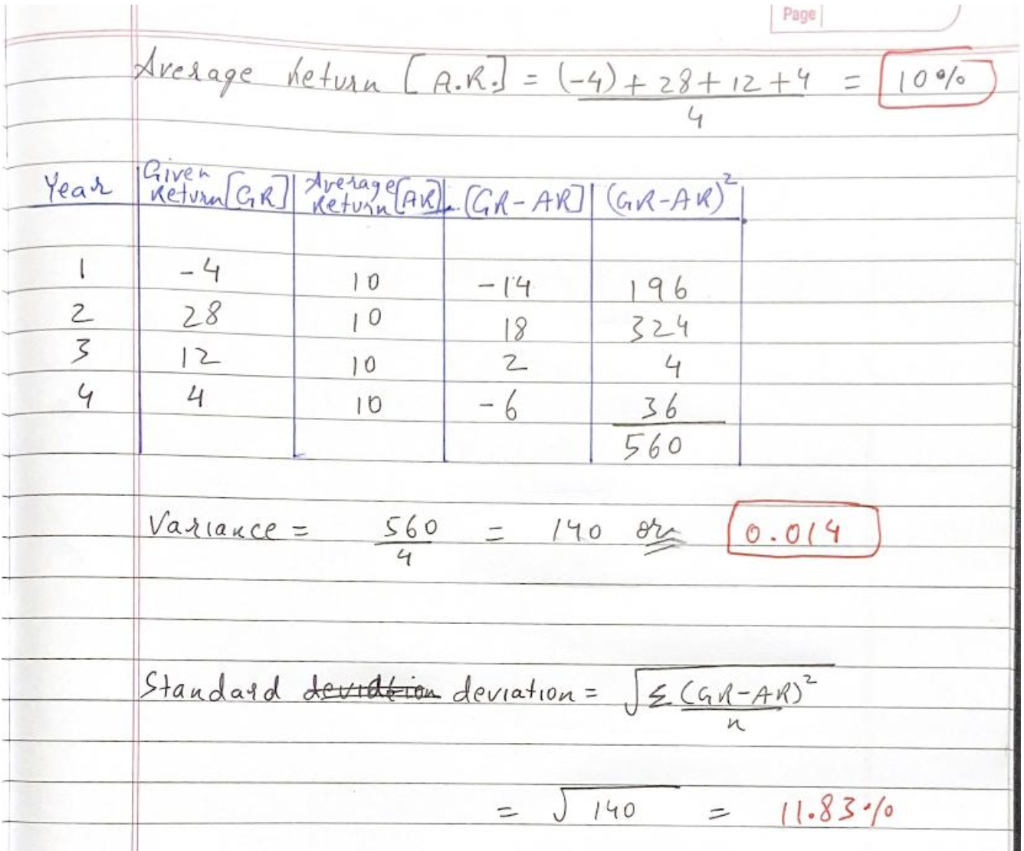 Page
Average Return [A.R.] = (-4) + 28 + 12 + 4 / 4 = 10%
Year Given Return [GR] Average Return [AR] [GR-AR] (GR-AR)²
1 -4 10 -14 196
2 28 10 18 324
3 12 10 2 4
4 4 10 -6 36
560
Variance = 560 / 4 = 140 or 0.014
Standard deviation = √Σ(GR-AR)² / n
= √140 = 11.83%